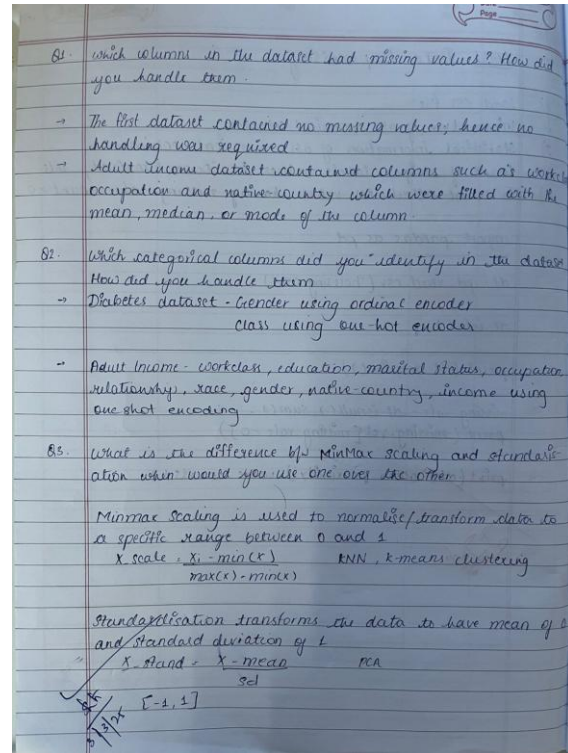 Page
Q1. which columns in the dataset had missing values? How did
you handle them.
→ The first dataset contained no missing values, hence no
handling was required
→ Adult Income dataset contained columns such as workcl
occupation and native-country which were filled with the
mean, median, or mode of the column.
Q2. which categorical columns did you identify in the datase
How did you handle them
→ Diabetes dataset - Gender using ordinal encoder
class using one-hot encoder
→ Adult Income - workclass, education, marital status, occupation
relationship, race, gender, native-country, income using
one shot encoding
Q3. what is the difference b/w MinMax scaling and standasis-
ation when would you use one over the other
Minmax scaling is used to normalise/transform data to
a specific range between 0 and 1
X_scale = xi - min(x) KNN, k-means clustering
max(x) - min(x)
Standardisation transforms the data to have mean of 0
and standard deviation of 1
X_stand = X - mean PCA
sd
[-1, 1]